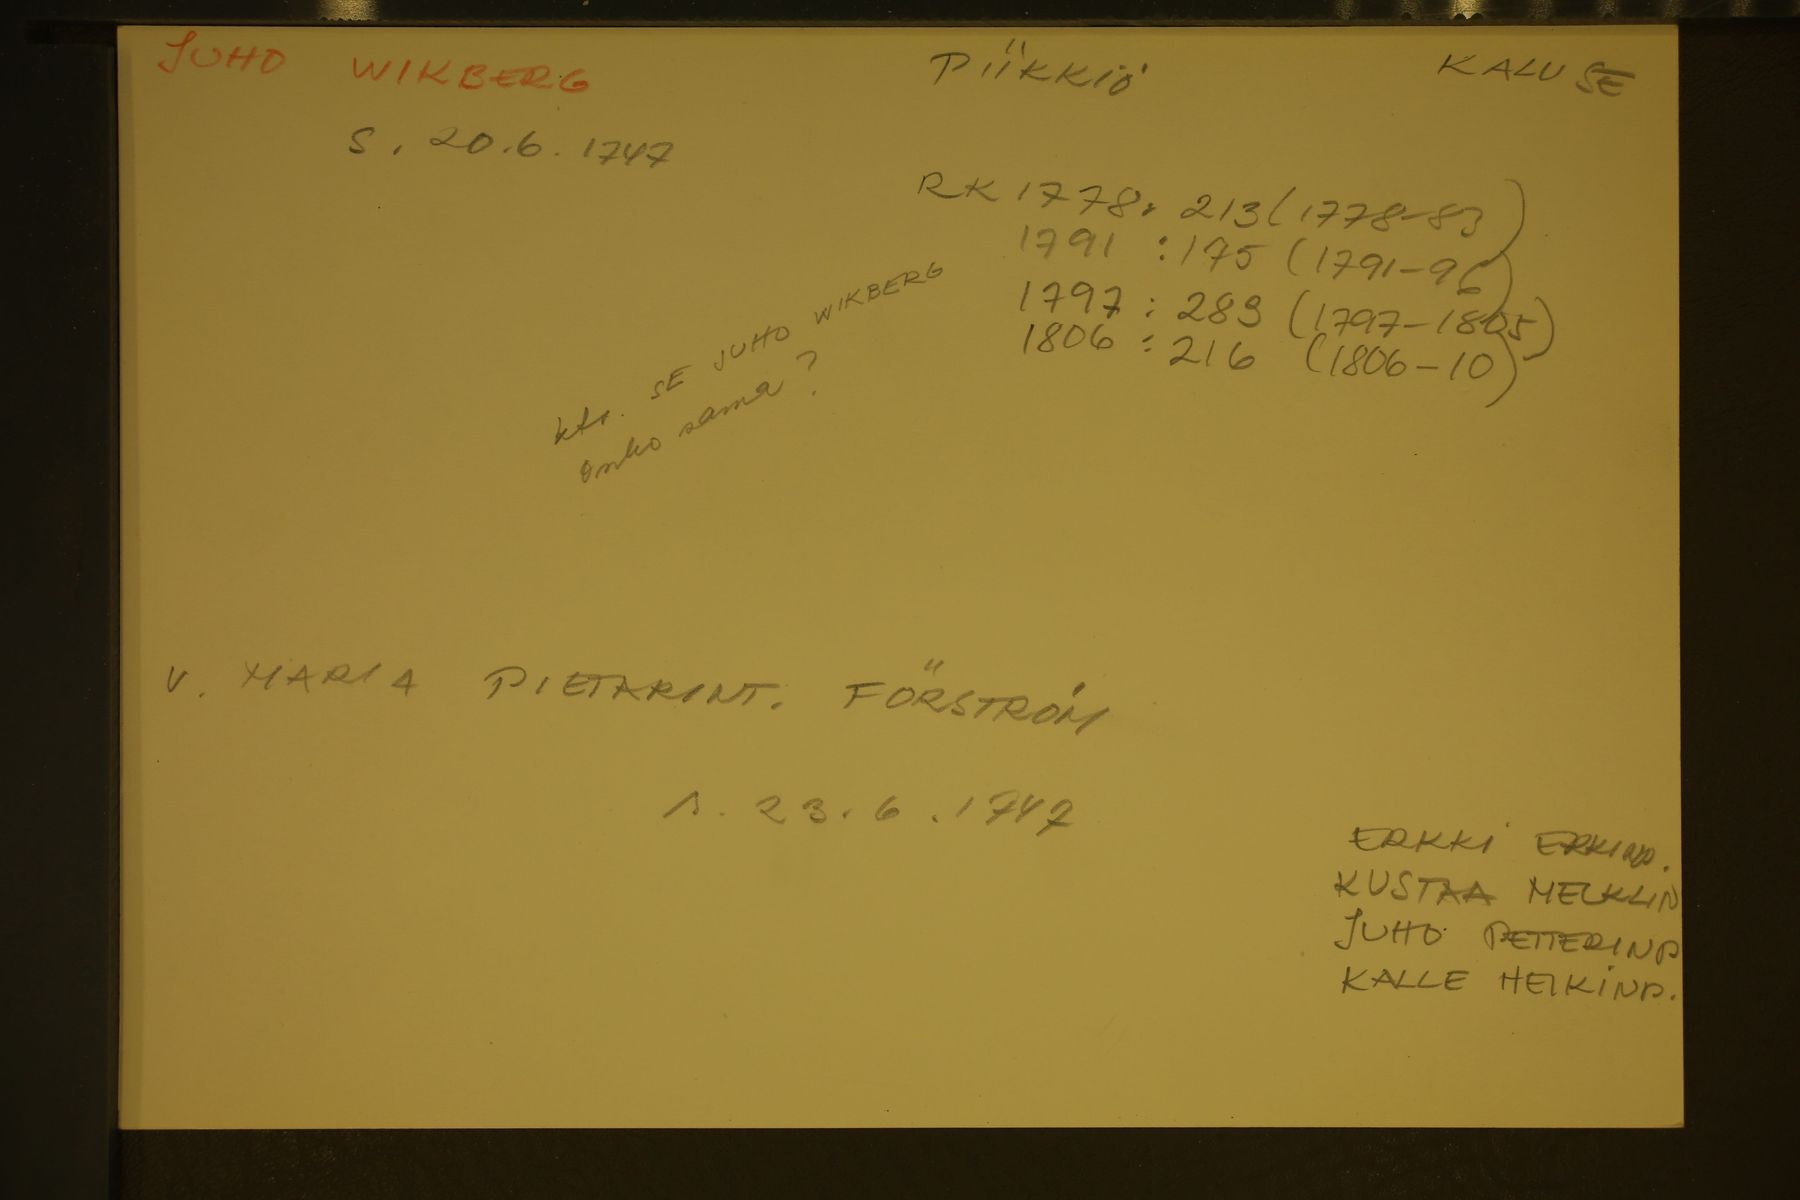 JUHO WIKBERG PIIKKIÖ KALUSE
S. 20.6. 1747
RK 1778: 213 (1778-83)
1791 : 175 (1791-96)
1797 : 283 (1797-1805)
1806 : 216 (1806-10)
kts. SE JUHO WIKBERG
onko sama?
V. MARIA PIETARINT. FÖRSTRÖM
s. 23.6.1747
ERKKI ERKINP.
KUSTAA MELKLIN
JUHO PETTERINP
KALLE HEIKINP.